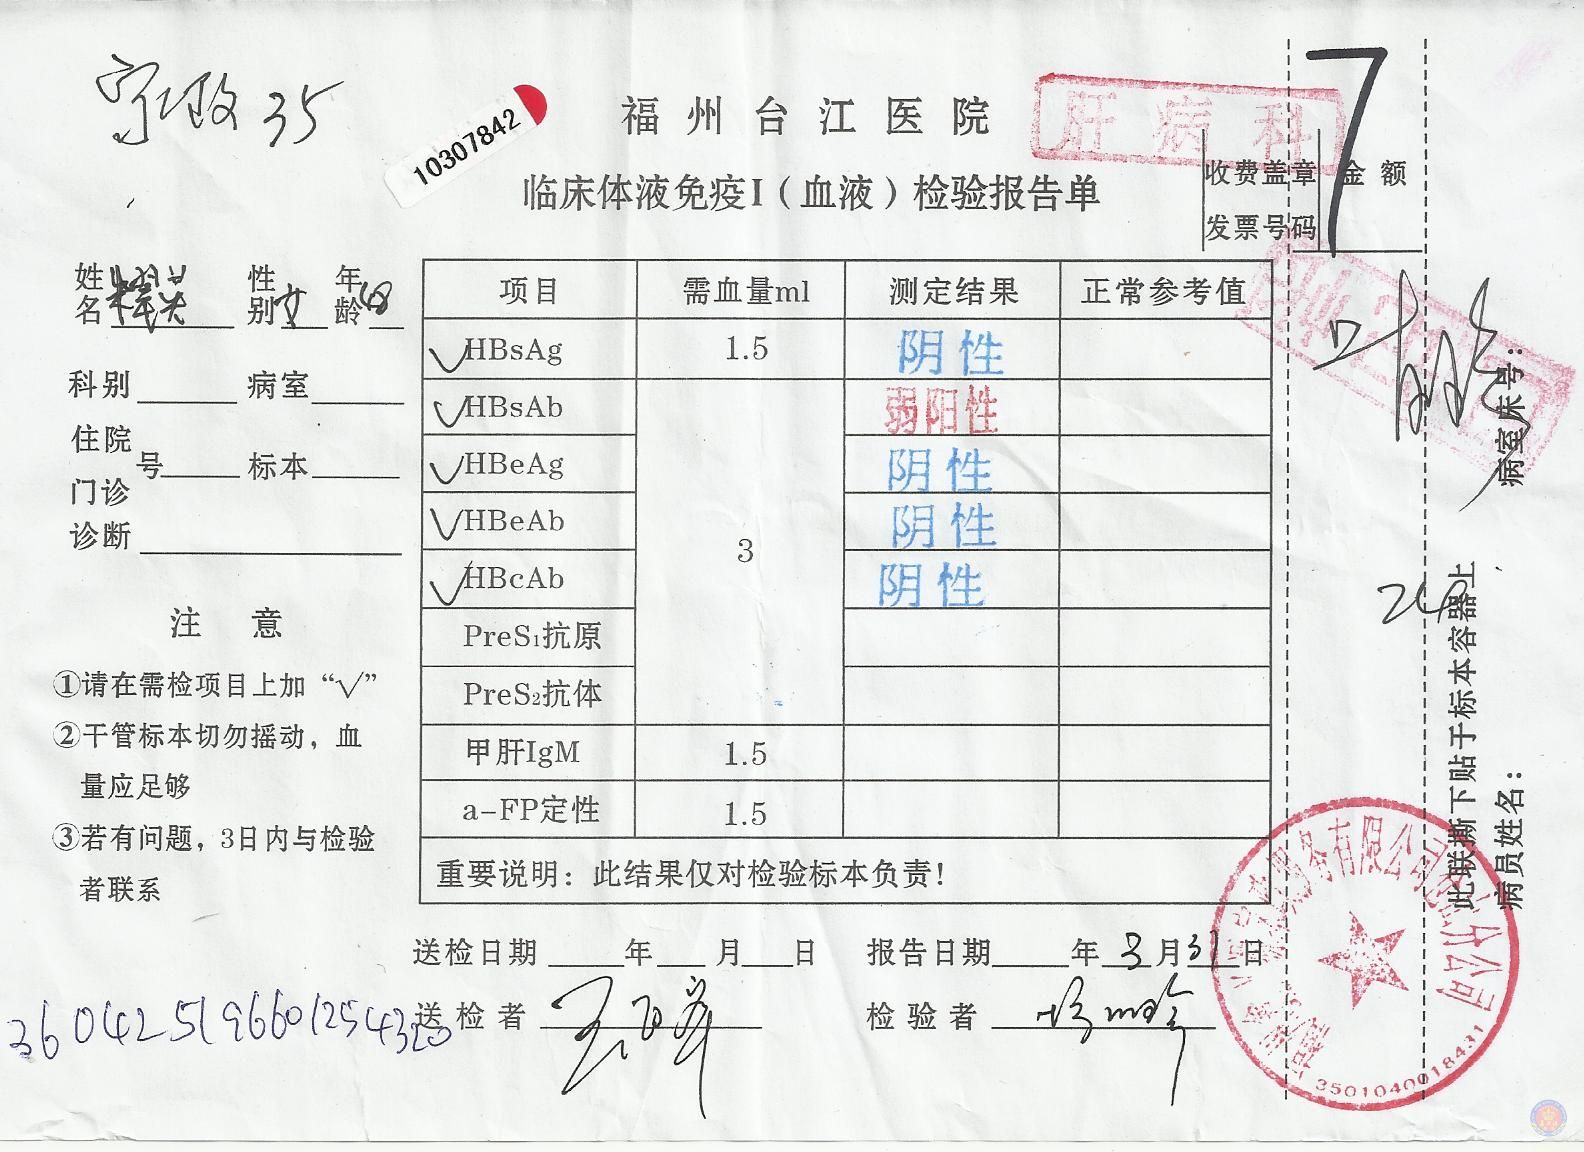 35
10307842
福州台江医院
肝病科
临床体液免疫I（血液）检验报告单
收费盖章 金额
发票号码
7
姓名 性别 女 年龄 48
科别 病室
住院
号 标本
门诊
诊断
注 意
①请在需检项目上加“√”
②干管标本切勿摇动，血
量应足够
③若有问题，3日内与检验
者联系
项目 需血量ml 测定结果 正常参考值
√HBsAg 1.5 阴性
√HBsAb 弱阳性
√HBeAg 阴性
√HBeAb 3 阴性
√HBcAb 阴性
PreS₁抗原
PreS₂抗体
甲肝IgM 1.5
a-FP定性 1.5
重要说明：此结果仅对检验标本负责！
送检日期 年 月 日 报告日期 年 3月31日
送检者 检验者
病室床号：
此联撕下贴于标本容器上
病员姓名：
务有限公司
分公司
3501040018431